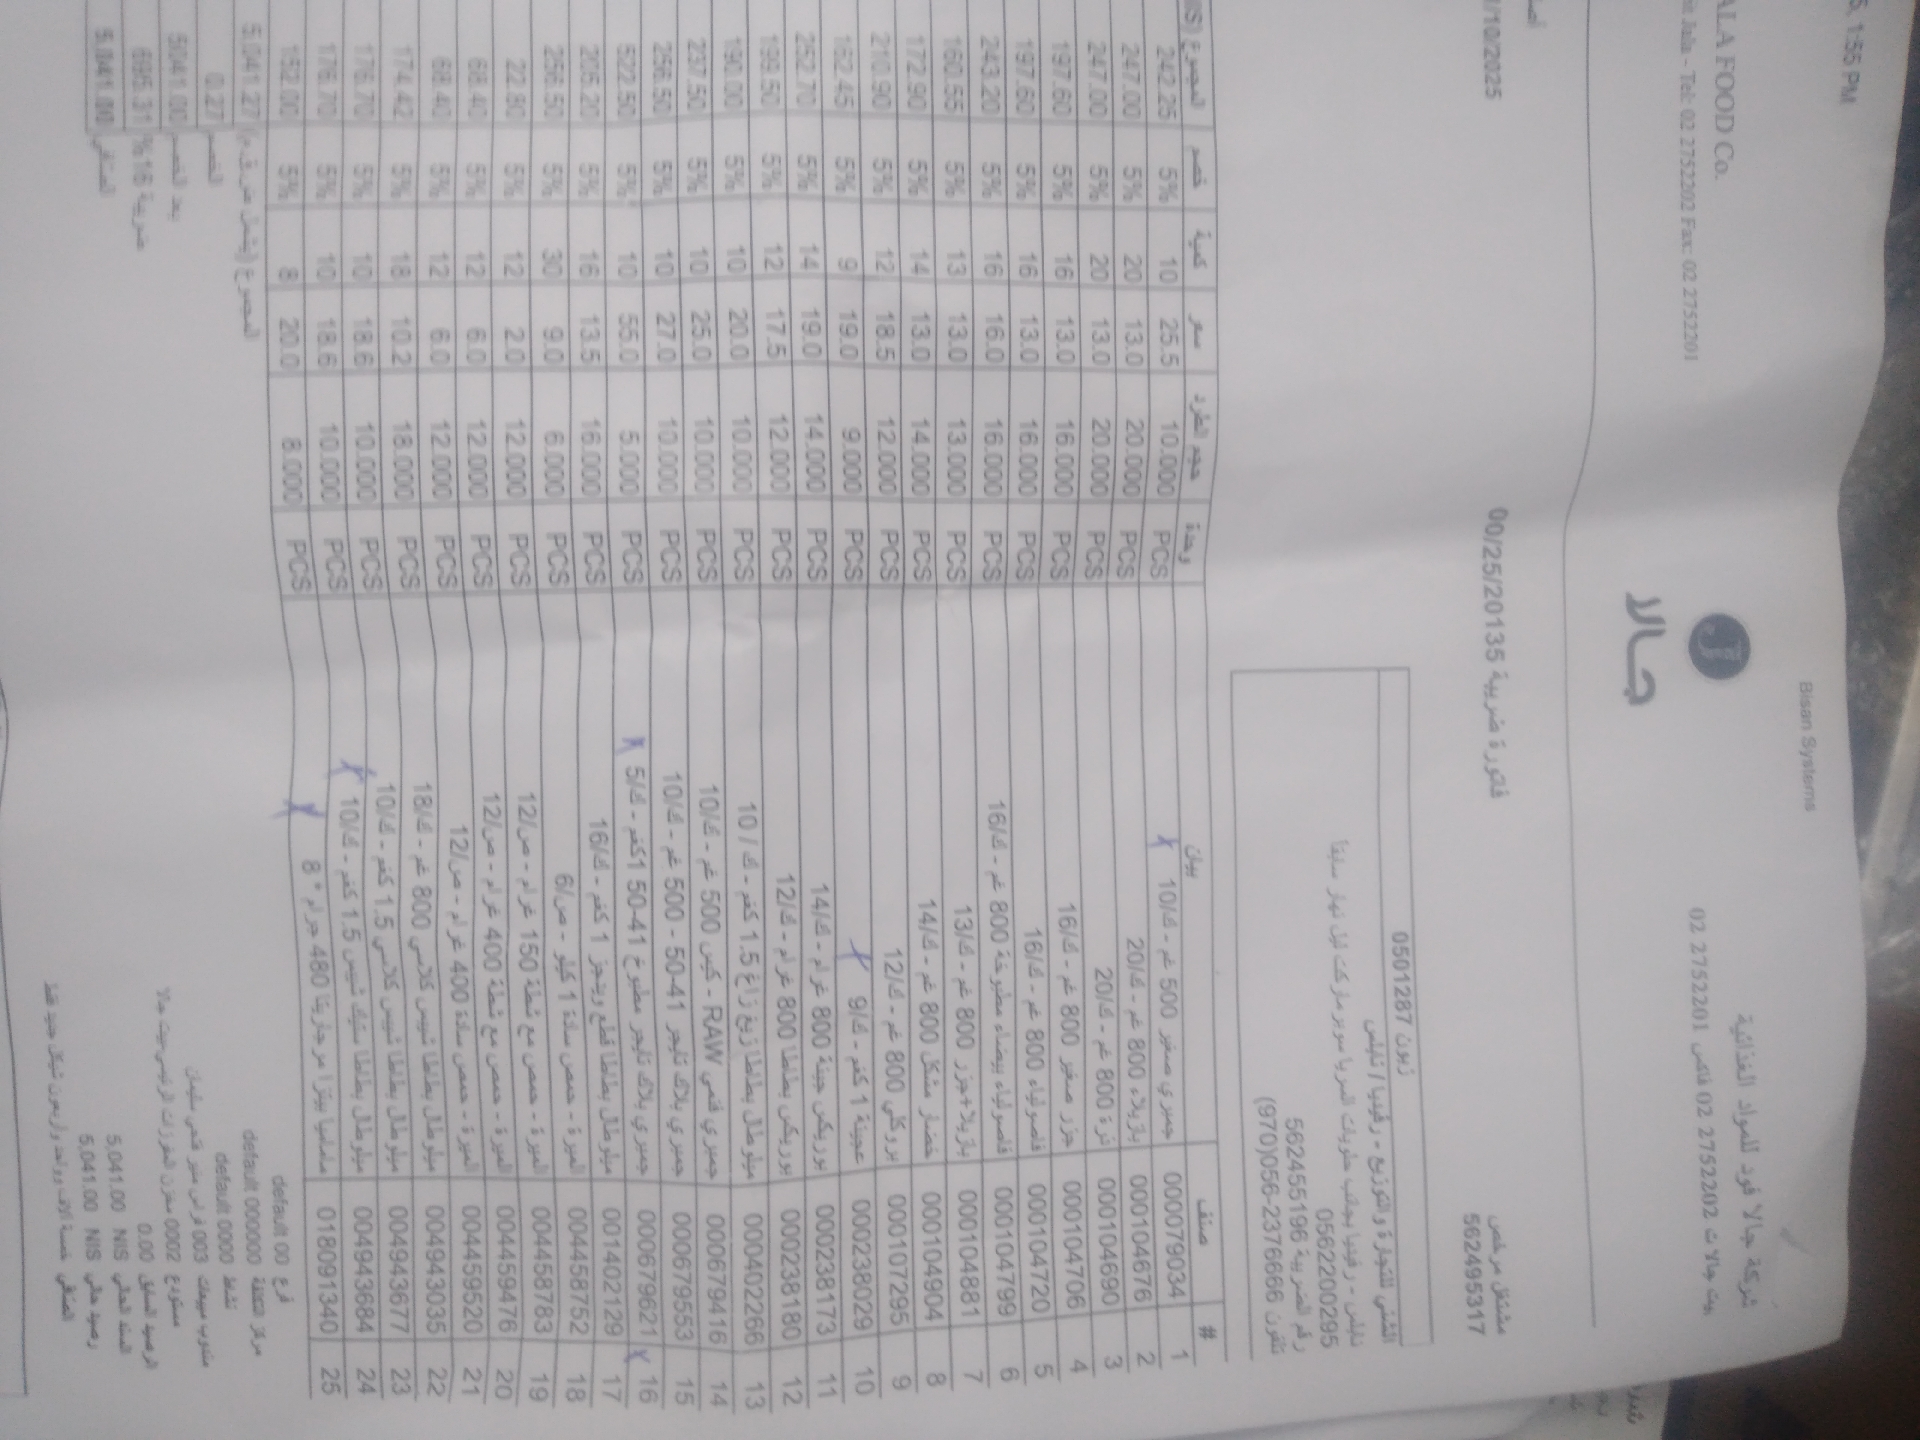 5, 1:55 PM
Bisan Systems
ALA FOOD Co.
Jala - Tel: 02 2752202 Fax: 02 2752201
جالا
شركة جالا فود للمواد الغذائية
بيت جالا ت 2752202 02 فاكس 2752201 02
/10/2025
فاتورة ضريبية 00/25/20135
مشتغل مرخص
562495317
زبون 0501287
للتجارة والتوزيع - رفيديا / نابلس
نابلس - رفيديا بجانب حلويات الثريا سوبر ماركت ليل نهار سابقا
0562200295
رقم الضريبة 562455196
تلفون 056-2376666(970)
# صنف بيان وحدة حجم الطرد سعر كمية خصم المجموع (NIS)
1 000079034 جمبري صغير 500 غم - ك/10 PCS 10.000 25.5 10 5% 242.25
2 000104676 بازيلاء 800 غم - ك/20 PCS 20.000 13.0 20 5% 247.00
3 000104690 ذرة 800 غم - ك/20 PCS 20.000 13.0 20 5% 247.00
4 000104706 جزر صغير 800 غم - ك/16 PCS 16.000 13.0 16 5% 197.60
5 000104720 فاصولياء 800 غم - ك/16 PCS 16.000 13.0 16 5% 197.60
6 000104799 فاصولياء بيضاء مطبوخة 800 غم - ك/16 PCS 16.000 16.0 16 5% 243.20
7 000104881 بازيلا+جزر 800 غم - ك/13 PCS 13.000 13.0 13 5% 160.55
8 000104904 خضار مشكل 800 غم - ك/14 PCS 14.000 13.0 14 5% 172.90
9 000107295 بروكلي 800 غم - ك/12 PCS 12.000 18.5 12 5% 210.90
10 000238029 عجينة 1 كغم - ك/9 PCS 9.000 19.0 9 5% 162.45
11 000238173 بوريكس جبنة 800 غرام - ك/14 PCS 14.000 19.0 14 5% 252.70
12 000238180 بوريكس بطاطا 800 غرام - ك/12 PCS 12.000 17.5 12 5% 199.50
13 000402266 ميلوطال بطاطا زيغ زاغ 1.5 كغم - ك / 10 PCS 10.000 20.0 10 5% 190.00
14 000679416 جمبري فتمي RAW - كيس 500 غم - ك/10 PCS 10.000 25.0 10 5% 237.50
15 000679553 جمبري بلاك تايجر 41-50 - 500 غم - ك/10 PCS 10.000 27.0 10 5% 256.50
16 000679621 جمبري بلاك تايجر مطبوخ 41-50 1كغم - ك/5 PCS 5.000 55.0 10 5% 522.50
17 001402129 ميلوطال بطاطا قطع ويدجز 1 كغم - ك/16 PCS 16.000 13.5 16 5% 205.20
18 004458752 الميرة - حمص سادة 1 كيلو - ص/6 PCS 6.000 9.0 30 5% 256.50
19 004458783 الميرة - حمص مع شطة 150 غرام - ص/12 PCS 12.000 2.0 12 5% 22.80
20 004459476 الميرة - حمص مع شطة 400 غرام - ص/12 PCS 12.000 6.0 12 5% 68.40
21 004459520 الميرة - حمص سادة 400 غرام - ص/12 PCS 12.000 6.0 12 5% 68.40
22 004943035 ميلوطال بطاطا شيبس كلاسي 800 غم - ك/18 PCS 18.000 10.2 18 5% 174.42
23 004943677 ميلوطال بطاطا شيبس كلاسي 1.5 كغم - ك/10 PCS 10.000 18.6 10 5% 176.70
24 004943684 ميلوطال بطاطا ستيك شيبس 1.5 كغم - ك/10 PCS 10.000 18.6 10 5% 176.70
25 018091340 بيتزا مرجاريتا 480 جرام * 8 PCS 8.000 20.0 8 5% 152.00
المجموع (يشمل ض.ق.م) 5,041.27
الخصم 0.27
بعد الخصم 5041.00
ضريبة 16% 695.31
الصافي 5,041.00
فرع 00 default
مركز التكلفة 000000 default
نشاط 0000 default
مندوب مبيعات 003
مستودع 0002
الرصيد السابق 0.00
السند الحالي 5,041.00 NIS
رصيد حالي 5,041.00 NIS
الصافي خمسة آلاف وواحد واربعون شيكل جديد فقط